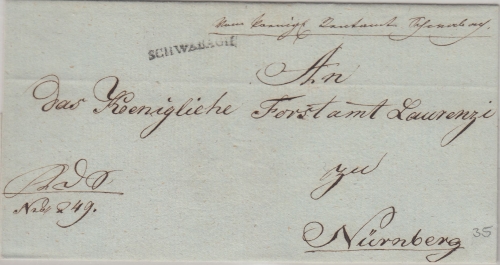 vom Koenigl Rentamt Schwabach
SCHWABACH.
An
das Koenigliche Forstamt Laurenzi
zu
Nürnberg
R. d. S.
Nro 249.
35